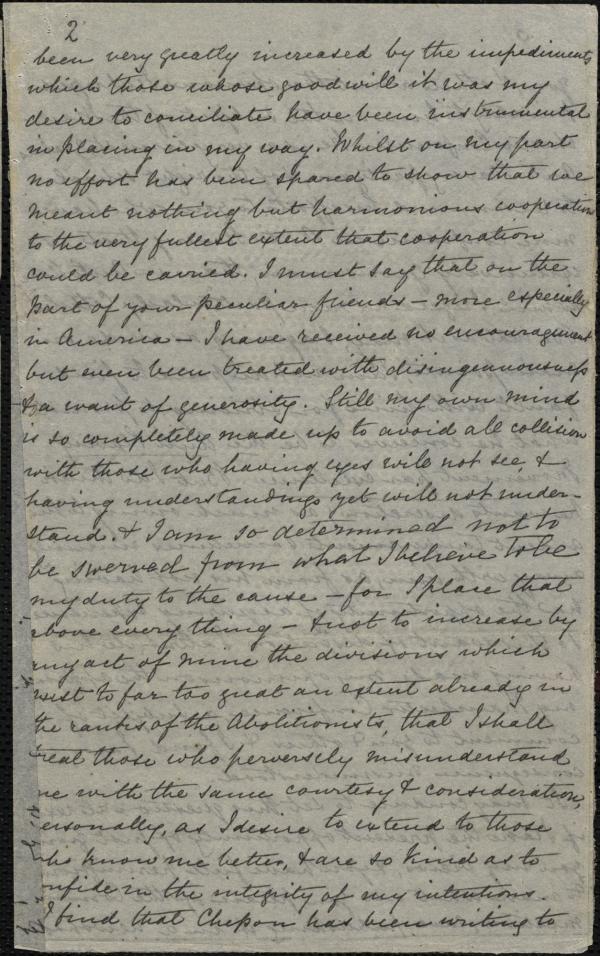 2
been very greatly increased by the impediments
which those whose goodwill it was my
desire to conciliate have been instrumental
in placing in my way. Whilst on my part
no effort has been spared to show that we
meant nothing but harmonious cooperation
to the very fullest extent that cooperation
could be carried. I must say that on the
part of your peculiar friends - more especially
in America - I have received no encouragement
but even been treated with disingenuousness
& a want of generosity. Still my own mind
is so completely made up to avoid all collision
with those who having eyes will not see, &
having understandings yet will not under-
stand. & I am so determined not to
be swerved from what I believe to be
my duty to the cause - for I place that
above every thing - & not to increase by
any act of mine the divisions which
exist to far too great an extent already in
the ranks of the Abolitionists, that I shall
treat those who perversely misunderstand
me with the same courtesy & consideration,
personally, as I desire to extend to those
who know me better, & are so kind as to
confide in the integrity of my intentions.
I find that Chesson has been writing to